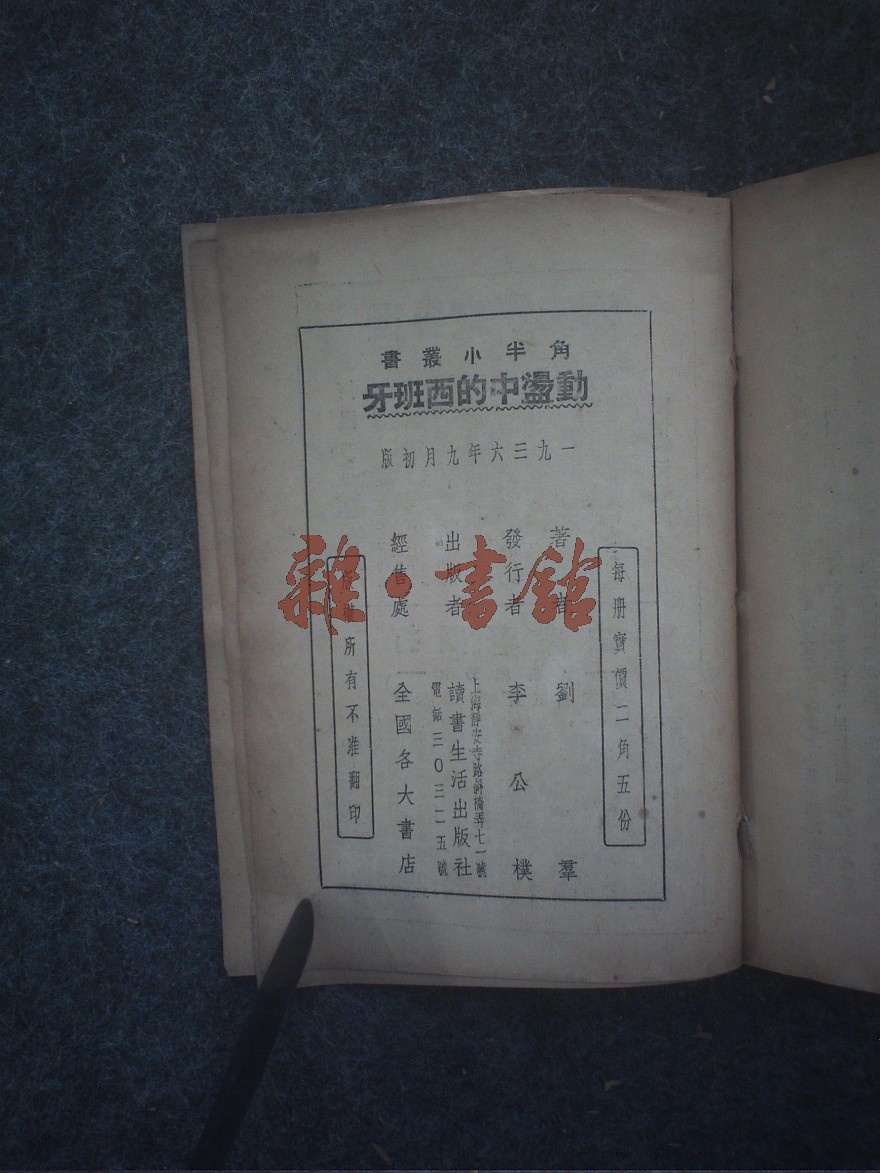 角半小叢書
動盪中的西班牙
一九三六年九月初版
每册實價二角五份
著者 劉羣
發行者 李公樸
上海靜安寺路斜橋弄七一號
出版者 讀書生活出版社
電話三〇三二五號
經售處 全國各大書店
所有不准翻印
雜·書館